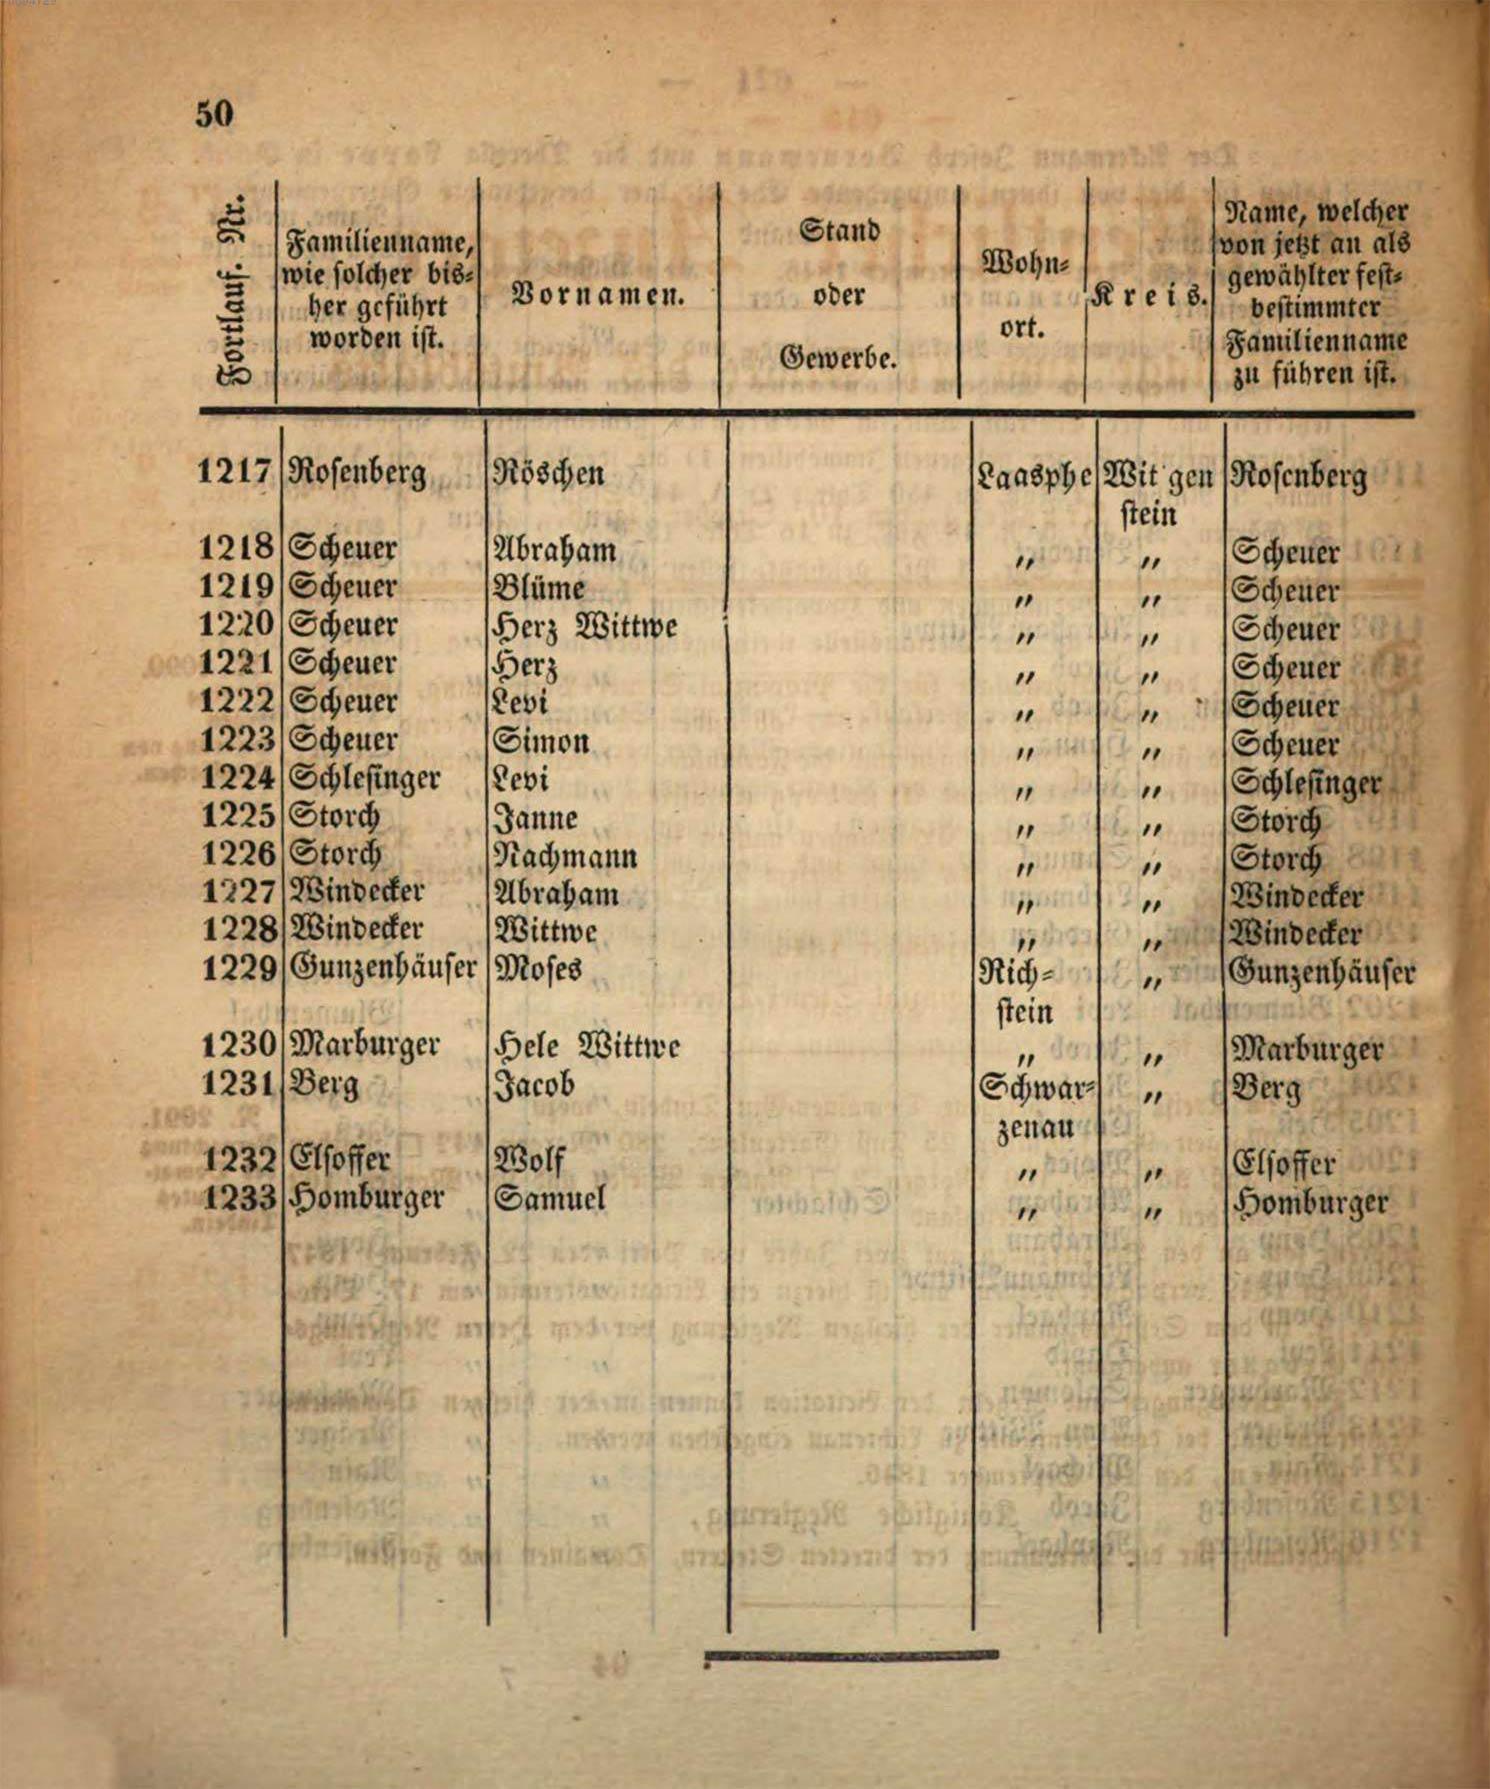 50
Fortlauf. Nr.
Familienname,
wie solcher bis-
her geführt
worden ist.
Vornamen.
Stand
oder
Gewerbe.
Wohn-
ort.
Kreis.
Name, welcher
von jetzt an als
gewählter fest-
bestimmter
Familienname
zu führen ist.
1217 Rosenberg Röschen Laasphe Wit gen Rosenberg
stein
1218 Scheuer Abraham „ „ Scheuer
1219 Scheuer Blüme „ „ Scheuer
1220 Scheuer Herz Wittwe „ „ Scheuer
1221 Scheuer Herz „ „ Scheuer
1222 Scheuer Levi „ „ Scheuer
1223 Scheuer Simon „ „ Scheuer
1224 Schlesinger Levi „ „ Schlesinger
1225 Storch Janne „ „ Storch
1226 Storch Nachmann „ „ Storch
1227 Windecker Abraham „ „ Windecker
1228 Windecker Wittwe „ „ Windecker
1229 Gunzenhäuser Moses Rich- „ Gunzenhäuser
stein
1230 Marburger Hele Wittwe „ „ Marburger
1231 Berg Jacob Schwar- „ Berg
zenau
1232 Elsoffer Wolf „ „ Elsoffer
1233 Homburger Samuel „ „ Homburger